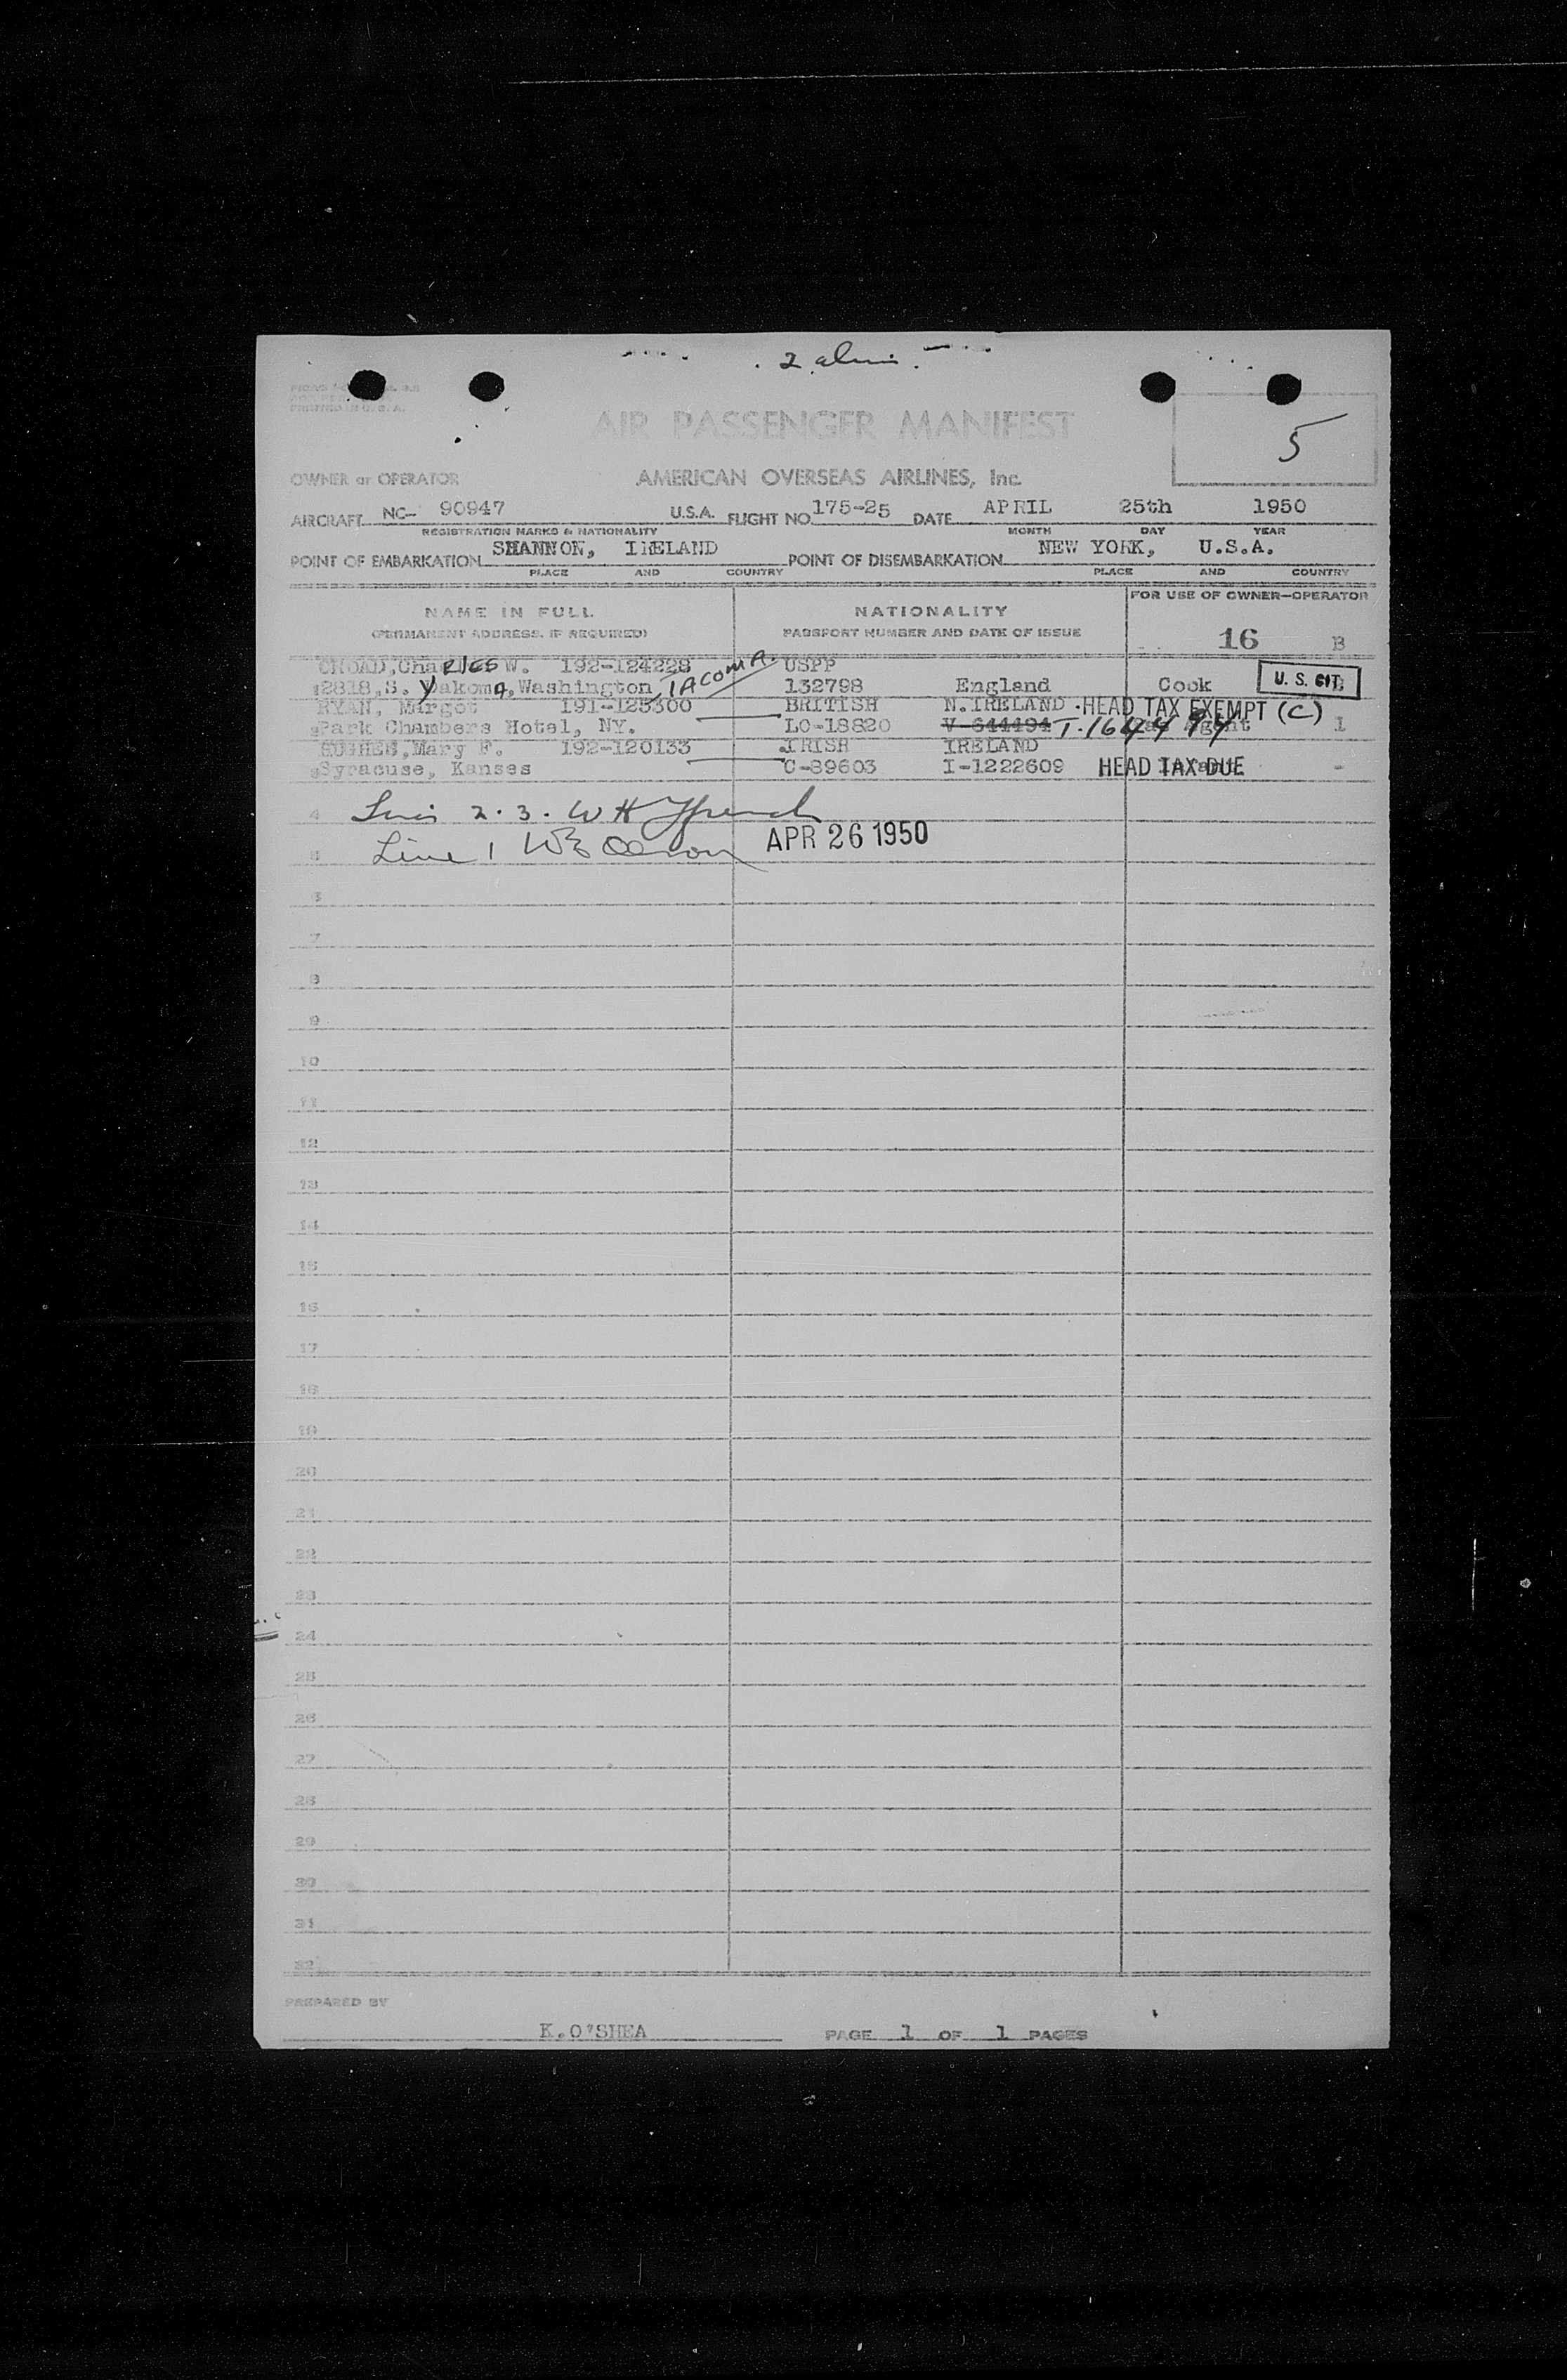 2
5
PRINTED IN U.S.A.
AIR PASSENGER MANIFEST
OWNER or OPERATOR AMERICAN OVERSEAS AIRLINES, Inc.
AIRCRAFT NC- 90947 U.S.A. FLIGHT NO. 175-25 DATE APRIL 25th 1950
REGISTRATION MARKS & NATIONALITY MONTH DAY YEAR
POINT OF EMBARKATION SHANNON, IRELAND POINT OF DISEMBARKATION NEW YORK, U.S.A.
PLACE AND COUNTRY PLACE AND COUNTRY
NAME IN FULL NATIONALITY FOR USE OF OWNER-OPERATOR
(PERMANENT ADDRESS, IF REQUIRED) PASSPORT NUMBER AND DATE OF ISSUE 16 B
CHOAD, ChaRlES W. 192-124228 TACOMA. USPP
1 2818, S. YakomA, Washington 132798 England Cook U. S. CIT.
RYAN, Margot 191-125300 BRITISH N.IRELAND HEAD TAX EXEMPT (C)
2 Park Chambers Hotel, NY. LO-18820 V-644494 T-1644494 Agent 1
HUGHES, Mary F. 192-120133 IRISH IRELAND
3 Syracuse, Kanses C-89603 I-1222609 HEAD TAX DUE -
4 Lines 2.3. W H
5 Line 1 APR 26 1950
6
7
8
9
10
11
12
13
14
15
16
17
18
19
20
21
22
23
24
25
26
27
28
29
30
31
32
PREPARED BY
K.O'SHEA PAGE 1 OF 1 PAGES